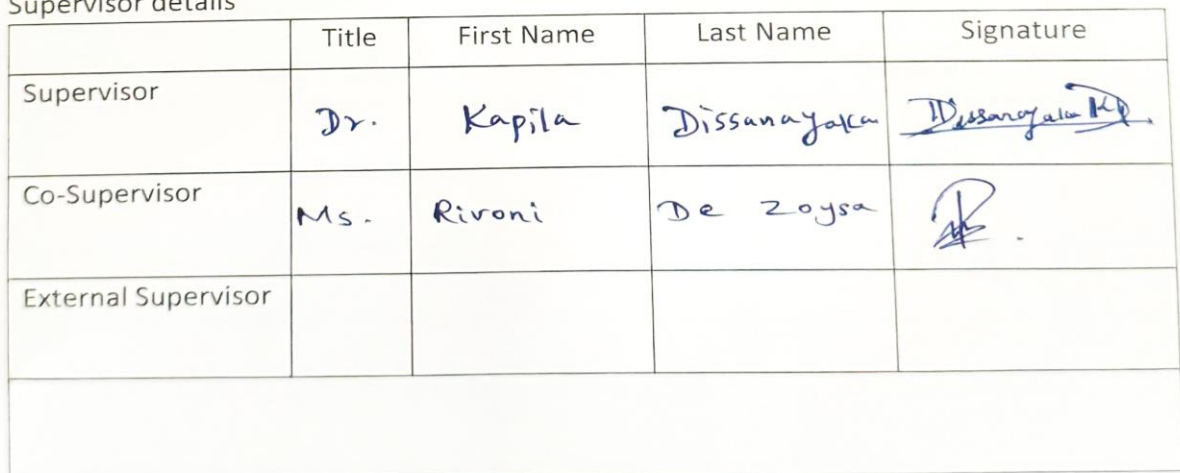 Supervisor details
Title First Name Last Name Signature
Supervisor Dr. Kapila Dissanayaka Dissanayaka KD.
Co-Supervisor Ms. Rivoni De Zoysa
External Supervisor